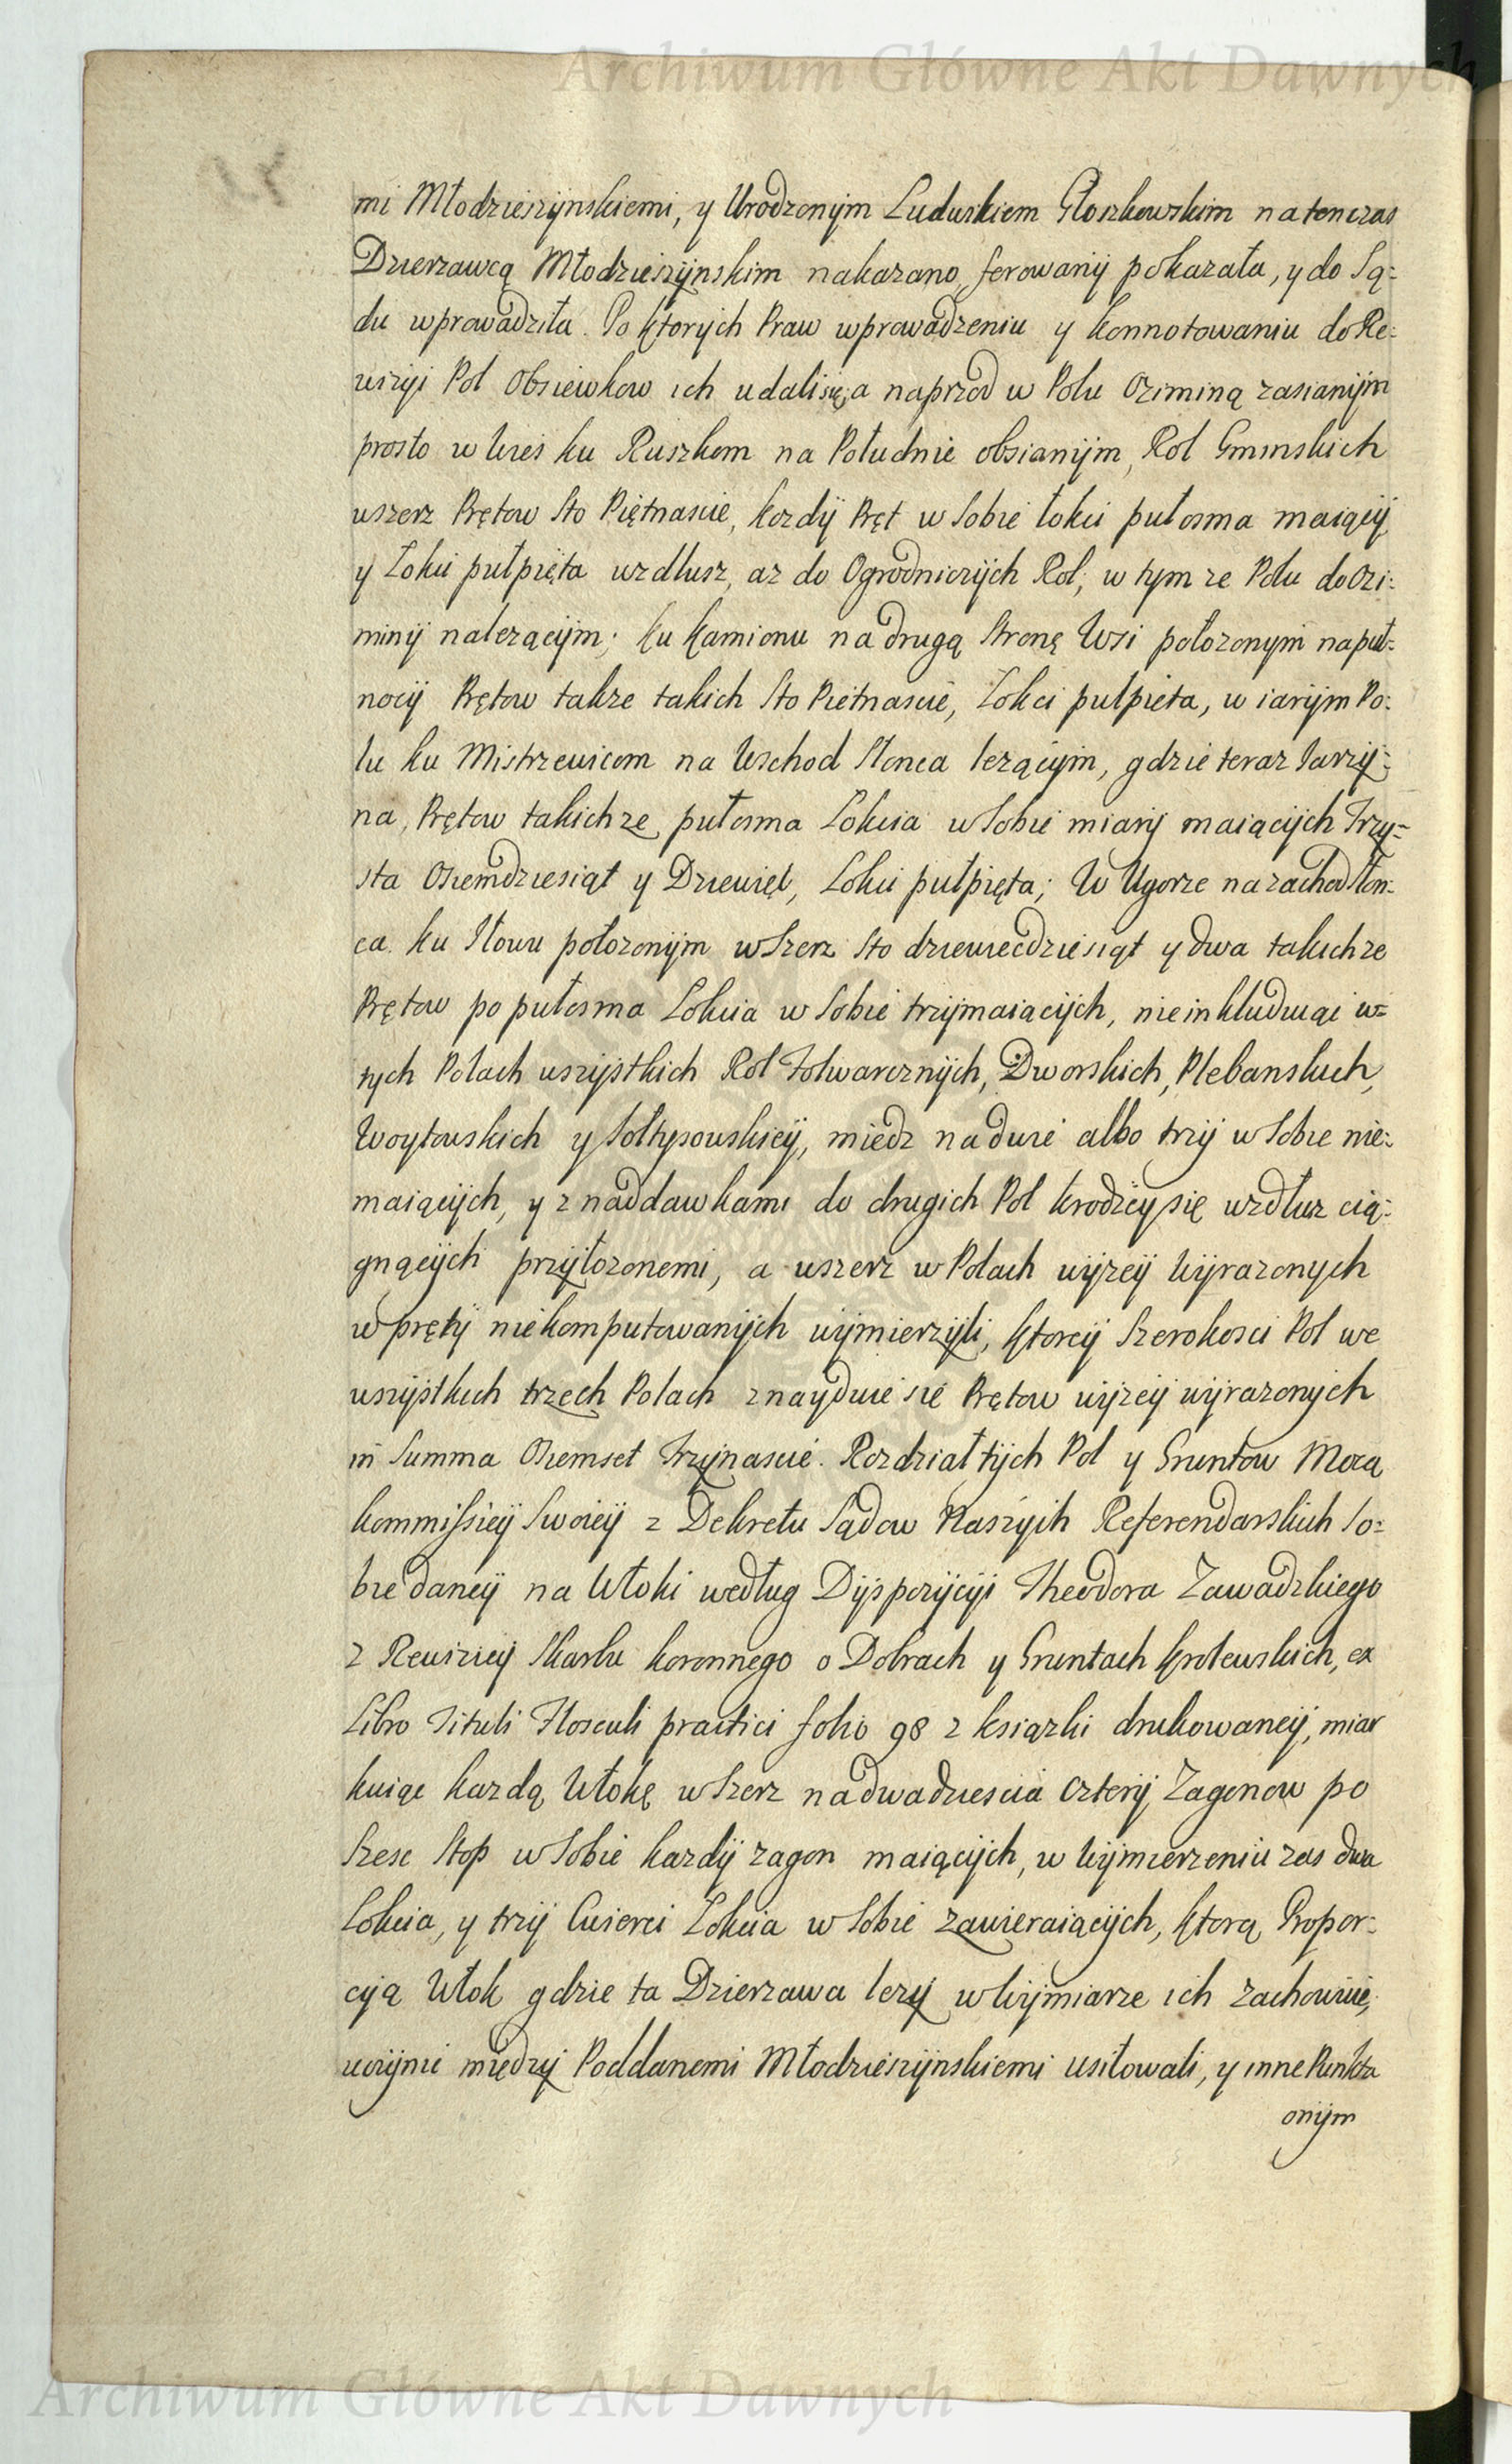 Archiwum Główne Akt Dawnych
mi Młodzieszynskiemi, y Urodzonym Ludwikiem Głoszkowskim natenczas
Dzierzawcą Młodzieszynskim nakazano, ferowany pokazała, y do Są-
du wprowadziła. Po ktorych Praw wprowadzeniu y konnotowaniu do Re-
wizyi Pol Obsiewkow ich udali się, a naprzod w Polu Oziminą zasianym
prosto w Wies ku Ruszkom na Południe obsianym, Rol Gminskich
wszerz Prętow Sto Piętnascie, kozdy Pręt w Sobie łokci pułosma maiącÿ
y Łokci pułpięta wzdlusz, az do Ogrodniczych Rol, w tym ze Polu do Ozi-
miny nalezącym; ku Kamionu na drugą Stronę Wsi połozonym na puł-
nocy Prętow takze takich Sto Pietnascie, Łokci pułpieta, w iarym Po-
lu ku Mistrzewicom na Wschod Słonca lezącym, gdzie teraz Jarzy-
na, Prętow takichze pułosma Łokcia w Sobie miary maiących Trzy-
sta Osiemdziesiąt y Dziewięc, Łokci pułpięta; W Ugorze na zachod Słon-
ca ku Iłowu połozonym w Szerz Sto dziewiecdziesiąt y dwa takichze
Prętow po pułosma Łokcia w Sobie trzymaiących, nieinkluduiąc w-
tych Polach wszystkich Rol Folwarcznych, Dworskich, Plebanskich,
Woytowskich y Sołtysowskiey, miedz na dwie albo trzy w Sobie nie-
maiących, y z naddawkami do drugich Pol krodzey się wzdłuz cią-
gnących przyłozonemi, a wszerz w Polach wyzey wyrazonych
w pręty niekomputowanych wymierzyli, ktorey Szerokosci Pol we
wszystkich trzech Polach znayduie się Prętow wyzey wyrazonych
in Summa Osiemset Trzynascie. Rozdział tych Pol y Gruntow Mocą
kommissiey Swoiey z Dekretu Sądow Naszych Referendarskich So-
bie daney na Włoki według Dyspozycyi Theodora Zawadzkiego
z Rewiziey Skarbu koronnego o Dobrach y Gruntach Krolewskich, ex
Libro Tituli Flosculi practici folio 98 z ksiązki drukowaney, miar
kuiąc kazdą Włokę w Szerz na dwadziescia cztery Zagonow po
Szesc Stop w Sobie kazdy zagon maiących, w wymierzeniu zas dwa
Łokcia, y trzy Cwierci Łokcia w Sobie zawieraiących, ktorą Propor-
cyą Włok gdzie ta Dzierzawa lezy w wymiarze ich zachowuie,
uczynic miedzy Poddanemi Młodzieszynskiemi usiłowali, y inne Punkta
onym
Archiwum Główne Akt Dawnych